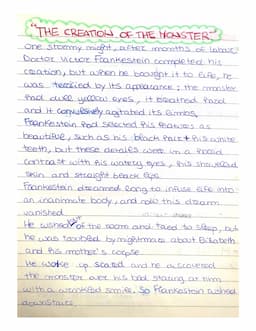 "THE CREATION OF THE MONSTER"
One stormy night, after months of labour,
Doctor Victor Frankestein completed his
creation, but when he bought it to life, he
was terrified by its appearance; the monster
had dull yellow eyes, it breathed hard
and it convulsively agitated its limbs.
Frankestein had selected his features as
beautiful, such as his black hair & his white
teeth, but these details were in a horrid
contrast with his watery eyes, his shriveled
skin and straight black lips
Frankestein dreamed long to infuse life into
an inanimate body, and now this dream
vanished
He rushed out of the room and tried to sleep, but
he was troubled by nightmares about Elizabeth
and his mother's corpse
He woke up scared and he discovered
the monster over his bed staring at him
with a wrinkled smile. So Frankestein rushed
downstairs